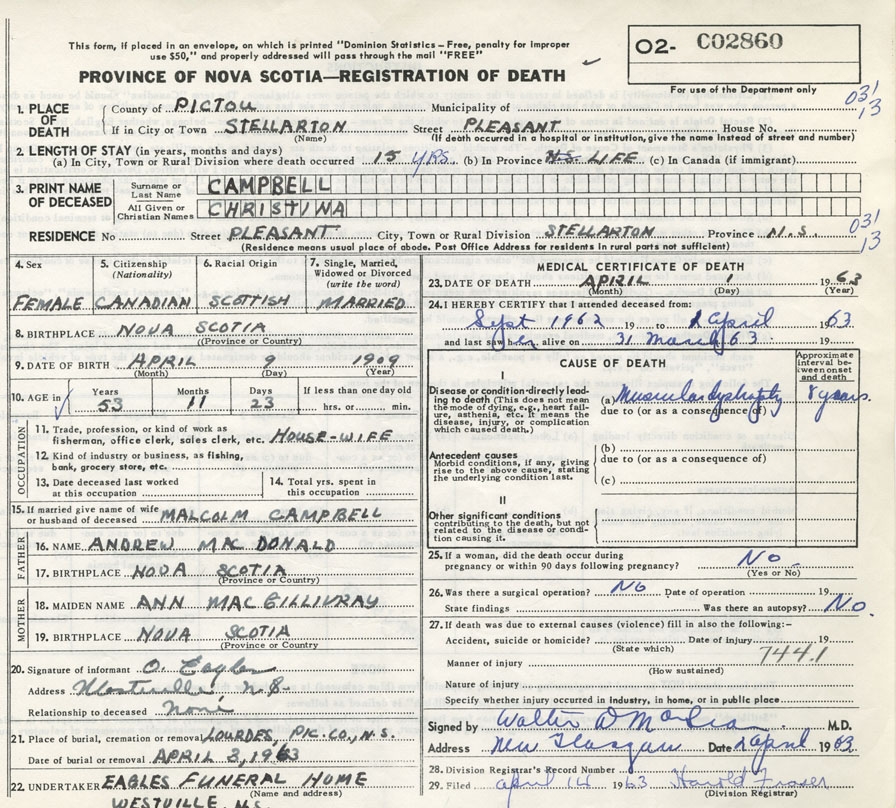 This form, if placed in an envelope, on which is printed "Dominion Statistics – Free, penalty for improper
use $50," and properly addressed will pass through the mail "FREE"
PROVINCE OF NOVA SCOTIA—REGISTRATION OF DEATH
O2- C02860
For use of the Department only
031
13
1. PLACE OF DEATH County of PICTOU Municipality of
If in City or Town STELLARTON Street PLEASANT House No.
(Name) (If death occurred in a hospital or institution, give the name instead of street and number)
2. LENGTH OF STAY (in years, months and days)
(a) In City, Town or Rural Division where death occurred 15 YRS. (b) In Province N.S. LIFE (c) In Canada (if immigrant)
3. PRINT NAME OF DECEASED
Surname or Last Name CAMPBELL
All Given or Christian Names CHRISTINA
RESIDENCE No Street PLEASANT City, Town or Rural Division STELLARTON Province N.S.
(Residence means usual place of abode. Post Office Address for residents in rural parts not sufficient)
031
13
4. Sex FEMALE
5. Citizenship (Nationality) CANADIAN
6. Racial Origin SCOTTISH
7. Single, Married, Widowed or Divorced (write the word) MARRIED
8. BIRTHPLACE NOVA SCOTIA
(Province or Country)
9. DATE OF BIRTH APRIL 9 1909
(Month) (Day) (Year)
10. AGE in Years 53 Months 11 Days 23 If less than one day old hrs. or min.
OCCUPATION
11. Trade, profession, or kind of work as
fisherman, office clerk, sales clerk, etc. HOUSE-WIFE
12. Kind of industry or business, as fishing,
bank, grocery store, etc.
13. Date deceased last worked at this occupation
14. Total yrs. spent in this occupation
15. If married give name of wife
or husband of deceased MALCOLM CAMPBELL
FATHER
16. NAME ANDREW MAC DONALD
17. BIRTHPLACE NOVA SCOTIA
(Province or Country)
MOTHER
18. MAIDEN NAME ANN MAC GILLIVRAY
19. BIRTHPLACE NOVA SCOTIA
(Province or Country
20. Signature of informant O.
Address Westville, N.S.
Relationship to deceased none
21. Place of burial, cremation or removal LOURDES, PIC. CO., N.S.
Date of burial or removal APRIL 3, 1963
22. UNDERTAKER EAGLES FUNERAL HOME
(Name and address)
WESTVILLE N.S.
MEDICAL CERTIFICATE OF DEATH
23. DATE OF DEATH APRIL 1 1963
(Month) (Day) (Year)
24. I HEREBY CERTIFY that I attended deceased from:
Sept 1962 19 to 1 April 1963
and last saw her alive on 31 March 63 19
CAUSE OF DEATH
Approximate interval between onset and death
I
Disease or condition directly leading to death (This does not mean
the mode of dying, e.g., heart failure, asthenia, etc. It means the
disease, injury, or complication
which caused death.)
(a) Muscular dystrophy 8 years.
due to (or as a consequence of)
Antecedent causes
Morbid conditions, if any, giving
rise to the above cause, stating
the underlying condition last.
(b)
due to (or as a consequence of)
(c)
II
Other significant conditions
contributing to the death, but not
related to the disease or condition causing it.
25. If a woman, did the death occur during
pregnancy or within 90 days following pregnancy? No
(Yes or No)
26. Was there a surgical operation? No Date of operation 19
State findings Was there an autopsy? No.
27. If death was due to external causes (violence) fill in also the following:–
Accident, suicide or homicide? Date of injury 19
(State which)
744.1
Manner of injury
(How sustained)
Nature of injury
Specify whether injury occurred in industry, in home, or in public place
Signed by Walter D M.D.
Address New Glasgow Date 2 April 1963
28. Division Registrar's Record Number
29. Filed April 14 1963 Harold Fraser
(Division Registrar)